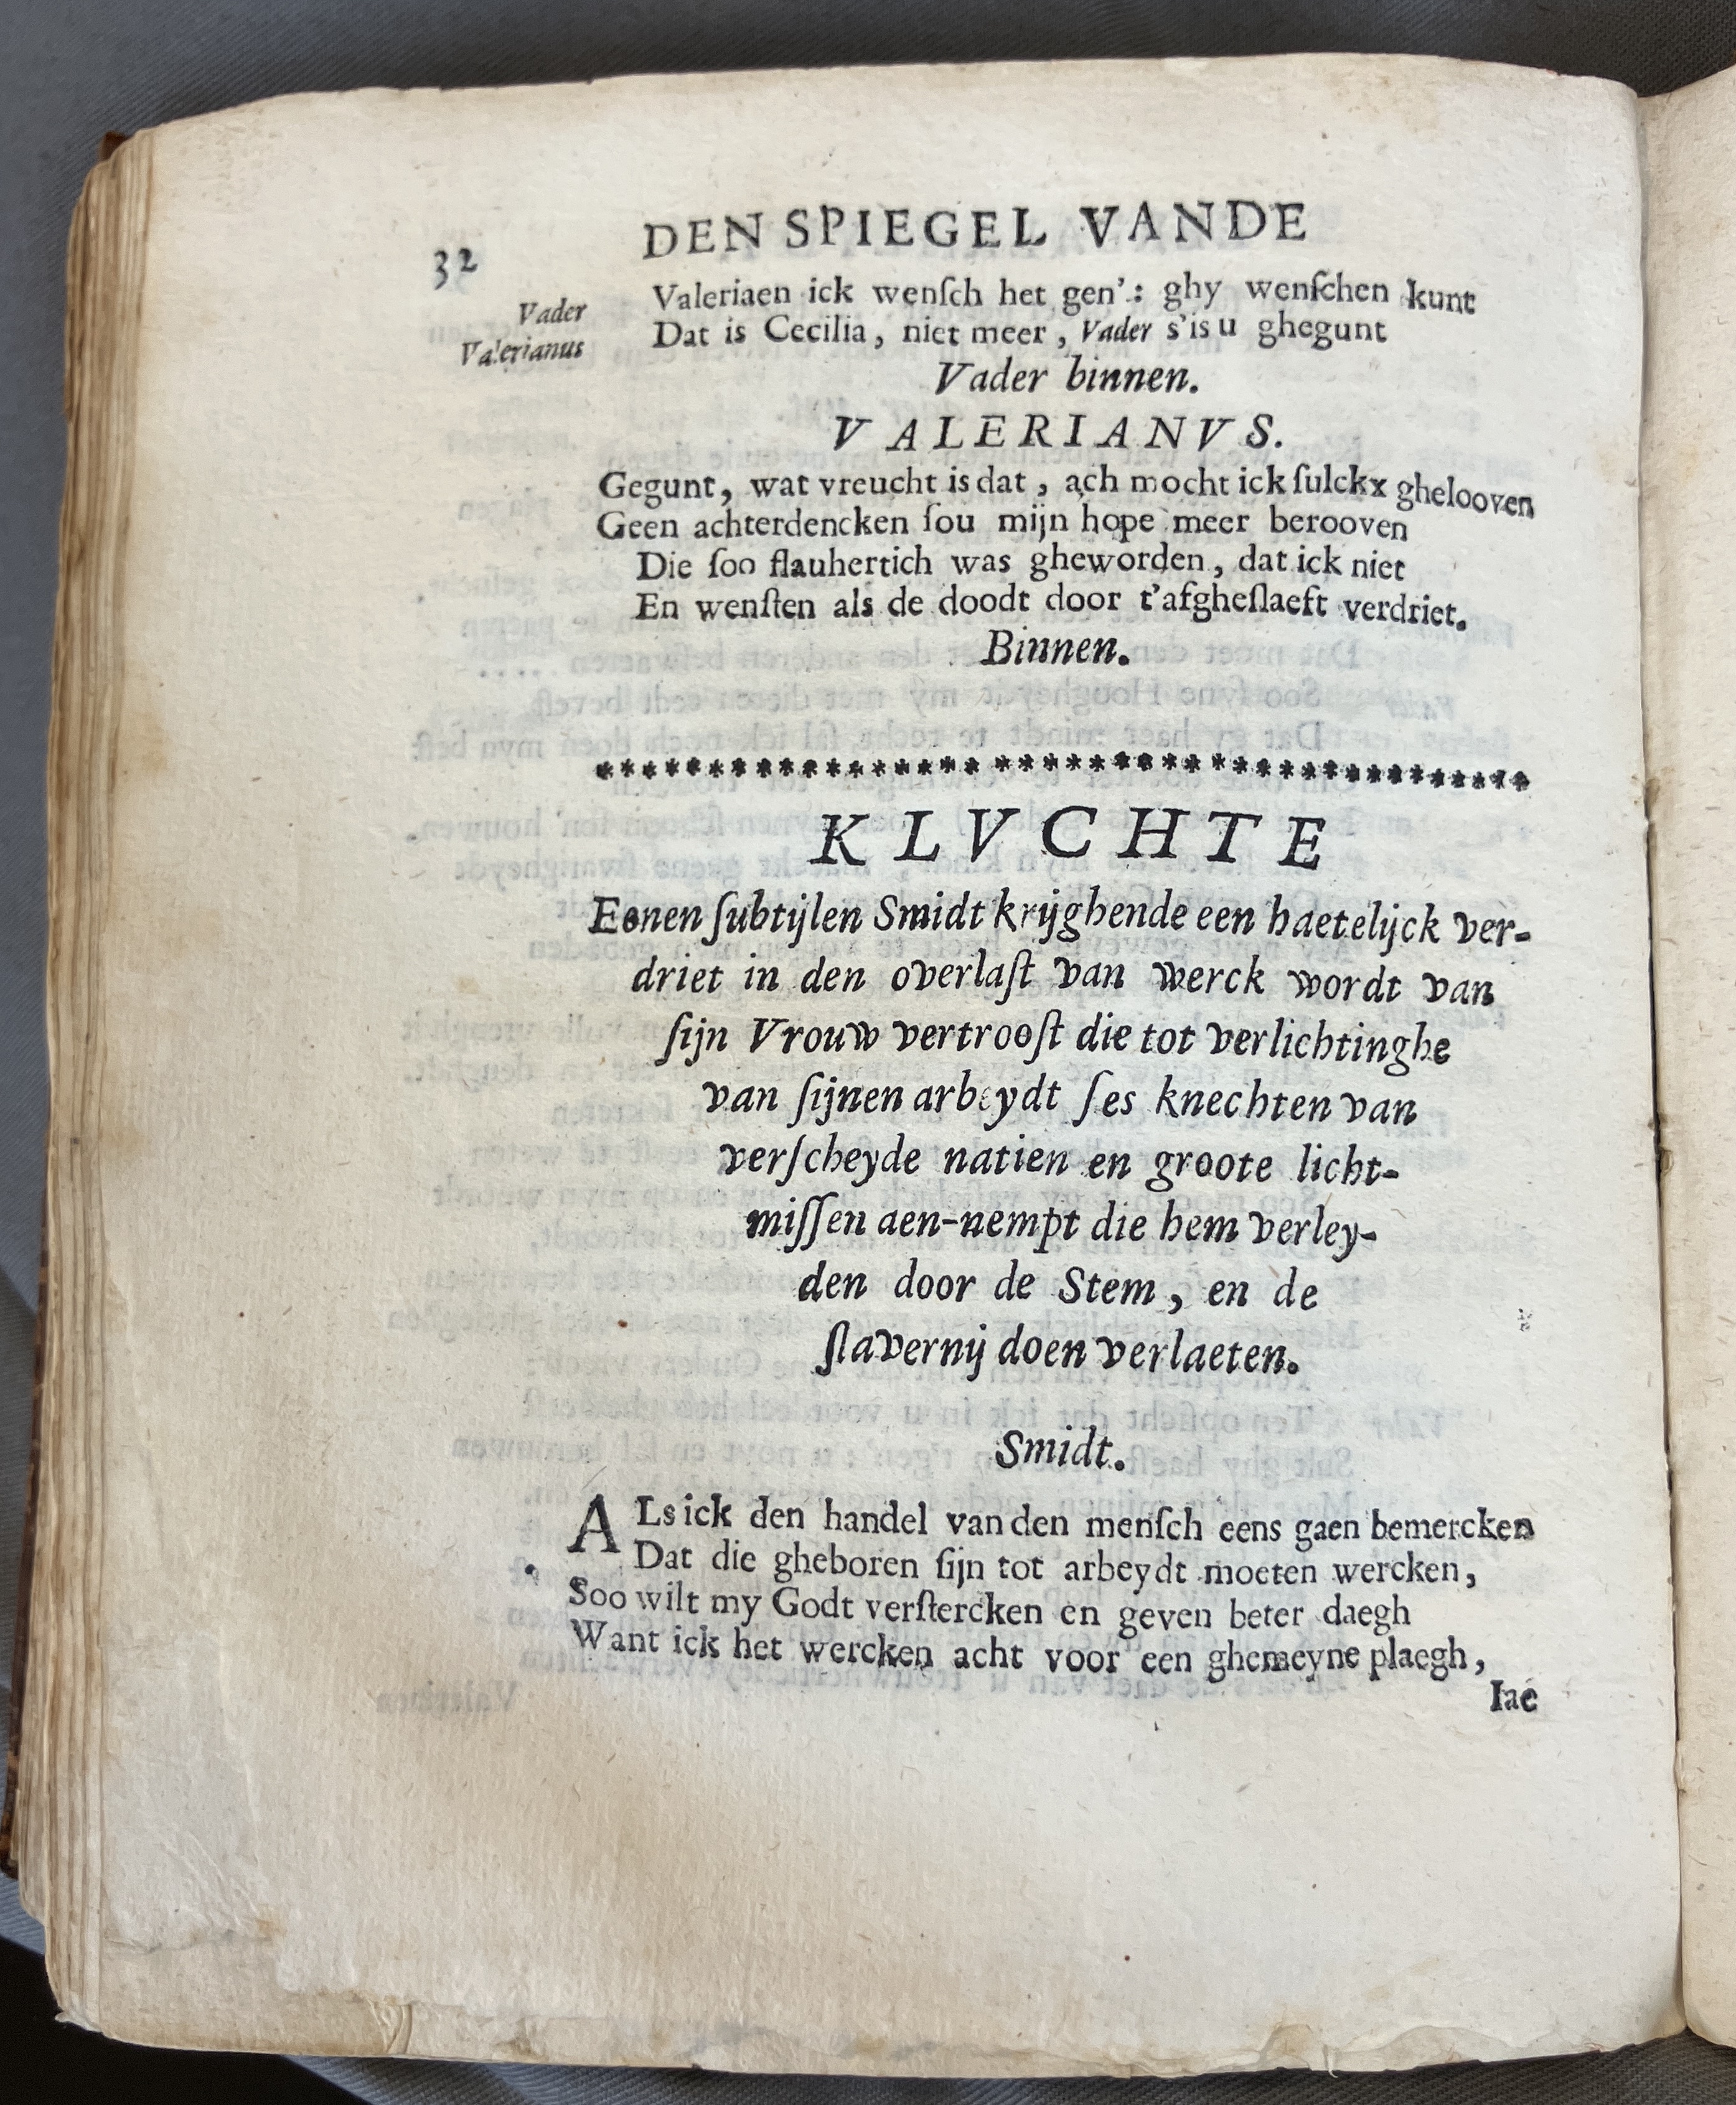 32 DEN SPIEGEL VANDE
Vader Valeriaen ick wenſch het gen': ghy wenſchen kunt
Valerianus Dat is Cecilia, niet meer, Vader s'is u ghegunt
Vader binnen.
VALERIANVS.
Gegunt, wat vreucht is dat, ach mocht ick ſulckx ghelooven
Geen achterdencken ſou mijn hope meer berooven
Die ſoo flauhertich was gheworden, dat ick niet
En wenſten als de doodt door t'afgheſlaeft verdriet.
Binnen.
****************************************
KLVCHTE
Eenen ſubtijlen Smidt krijghende een haetelijck ver-
driet in den overlaſt van werck wordt van
ſijn Vrouw vertrooſt die tot verlichtinghe
van ſijnen arbeydt ſes knechten van
verſcheyde natien en groote licht-
miſſen aen-nempt die hem verley-
den door de Stem, en de
ſlavernij doen verlaeten.
Smidt.
ALs ick den handel van den menſch eens gaen bemercken
Dat die gheboren ſijn tot arbeydt moeten wercken,
Soo wilt my Godt verſtercken en geven beter daegh
Want ick het wercken acht voor een ghemeyne plaegh,
Iae